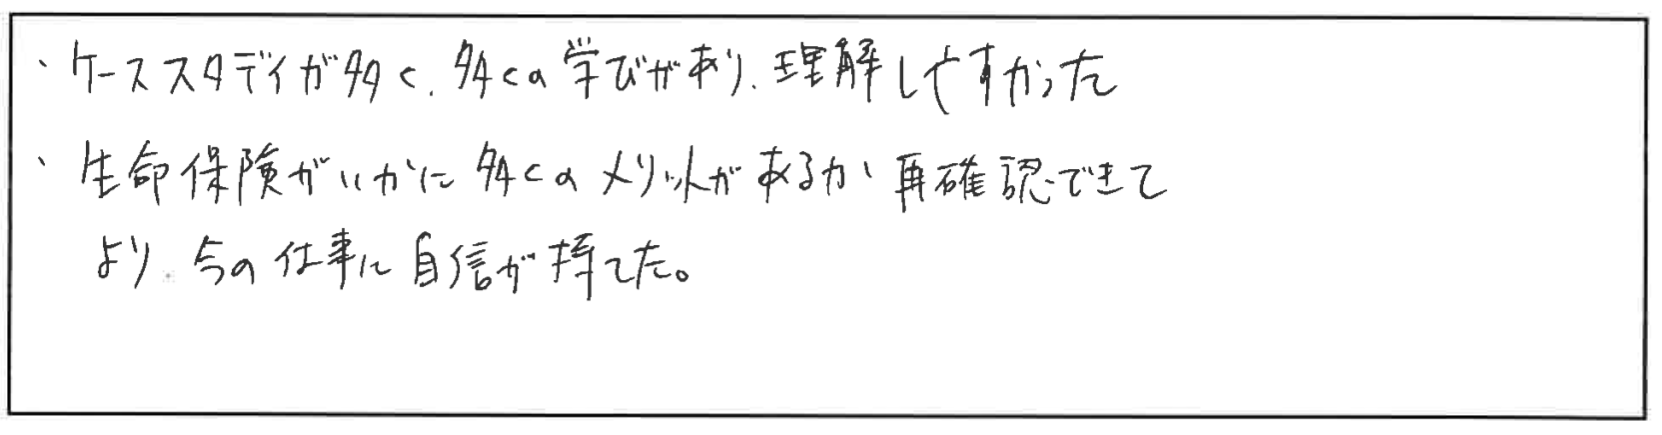 ・ケーススタディが多く、多くの学びがあり、理解しやすかった
・生命保険がいかに多くのメリットがあるか、再確認できて
より、今の仕事に自信が持てた。